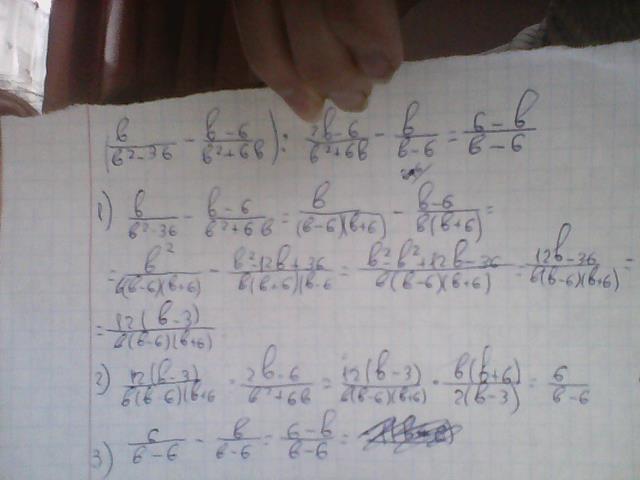 (в/(в²-36) - (в-6)/(в²+6в)) : (2в-6)/(в²+6в) - в/(в-6) = (6-в)/(в-6)
1) в/(в²-36) - (в-6)/(в²+6в) = в/((в-6)(в+6)) - (в-6)/(в(в+6)) =
= в²/(в(в-6)(в+6)) - (в²-12в+36)/(в(в+6)(в-6) = (в²-в²+12в-36)/(в(в-6)(в+6)) = (12в-36)/(в(в-6)(в+6)) =
= 12(в-3)/(в(в-6)(в+6))
2) 12(в-3)/(в(в-6)(в+6 : (2в-6)/(в²+6в) = 12(в-3)/(в(в-6)(в+6)) · в(в+6)/(2(в-3)) = 6/(в-6)
3) 6/(в-6) - в/(в-6) = (6-в)/(в-6) =